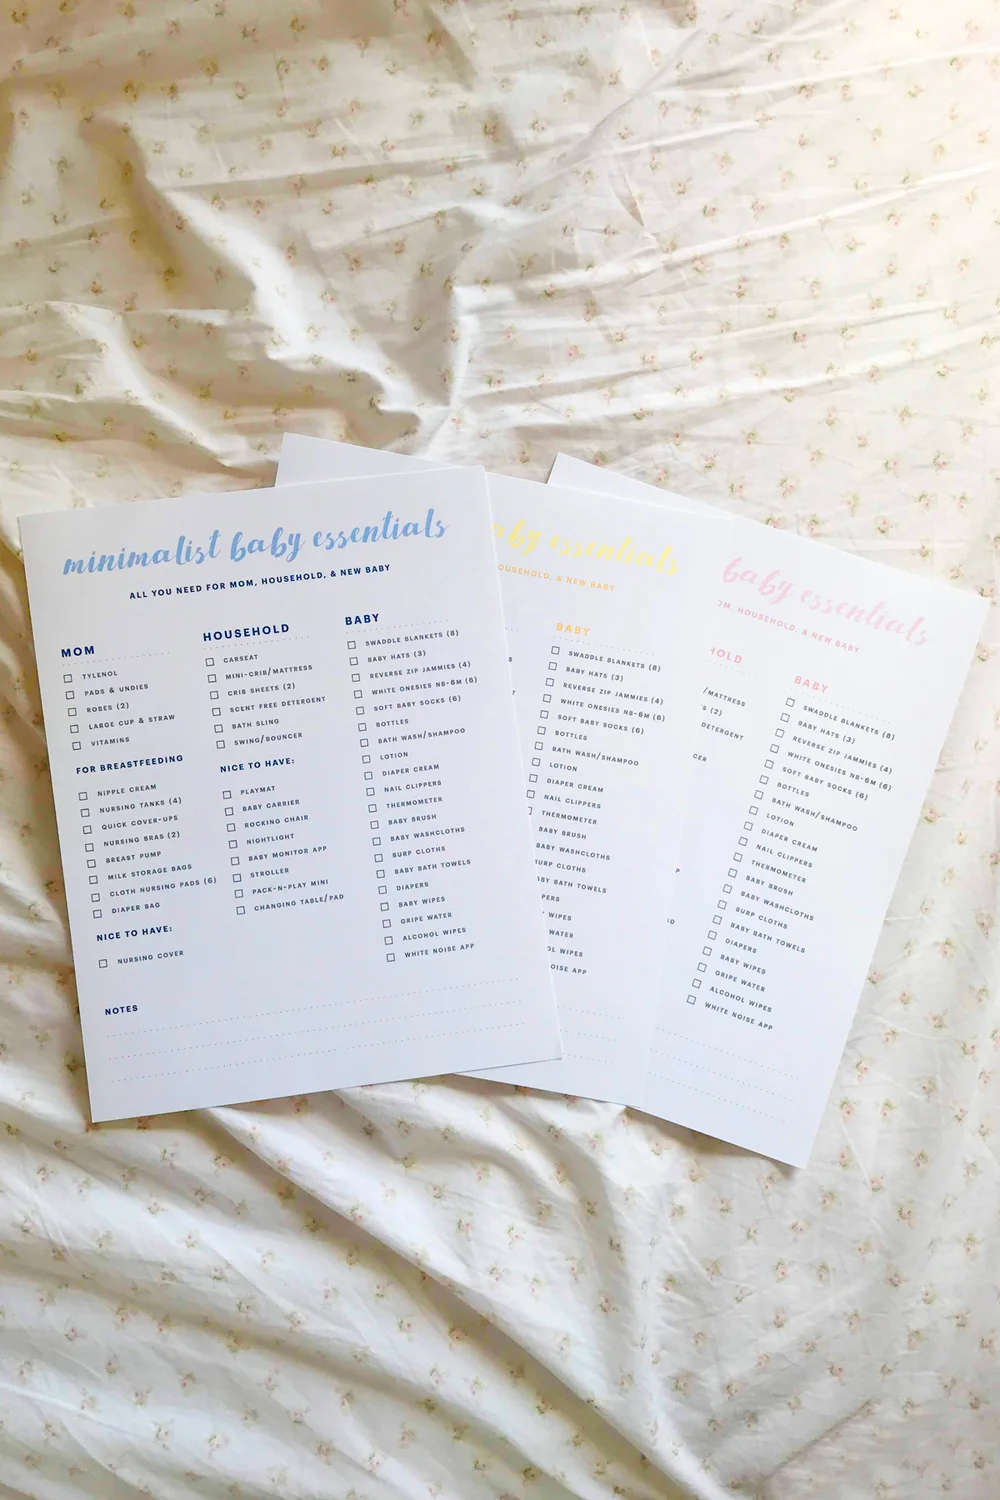 minimalist baby essentials
ALL YOU NEED FOR MOM, HOUSEHOLD, & NEW BABY
MOM
TYLENOL
PADS & UNDIES
ROBES (2)
LARGE CUP & STRAW
VITAMINS
FOR BREASTFEEDING
NIPPLE CREAM
NURSING TANKS (4)
QUICK COVER-UPS
NURSING BRAS (2)
BREAST PUMP
MILK STORAGE BAGS
CLOTH NURSING PADS (6)
DIAPER BAG
NICE TO HAVE:
NURSING COVER
HOUSEHOLD
CARSEAT
MINI-CRIB/MATTRESS
CRIB SHEETS (2)
SCENT FREE DETERGENT
BATH SLING
SWING/BOUNCER
NICE TO HAVE:
PLAYMAT
BABY CARRIER
ROCKING CHAIR
NIGHTLIGHT
BABY MONITOR APP
STROLLER
PACK-N-PLAY MINI
CHANGING TABLE/PAD
BABY
SWADDLE BLANKETS (8)
BABY HATS (3)
REVERSE ZIP JAMMIES (4)
WHITE ONESIES NB-6M (6)
SOFT BABY SOCKS (6)
BOTTLES
BATH WASH/SHAMPOO
LOTION
DIAPER CREAM
NAIL CLIPPERS
THERMOMETER
BABY BRUSH
BABY WASHCLOTHS
BURP CLOTHS
BABY BATH TOWELS
DIAPERS
BABY WIPES
GRIPE WATER
ALCOHOL WIPES
WHITE NOISE APP
NOTES
aby essentials
OUSEHOLD, & NEW BABY
BABY
SWADDLE BLANKETS (8)
BABY HATS (3)
REVERSE ZIP JAMMIES (4)
WHITE ONESIES NB-6M (6)
SOFT BABY SOCKS (6)
BOTTLES
BATH WASH/SHAMPOO
LOTION
DIAPER CREAM
NAIL CLIPPERS
THERMOMETER
BABY BRUSH
BABY WASHCLOTHS
BURP CLOTHS
BY BATH TOWELS
PERS
WIPES
WATER
OL WIPES
OISE APP
baby essentials
OM, HOUSEHOLD, & NEW BABY
HOLD
/MATTRESS
S (2)
DETERGENT
CER
P
D
BABY
SWADDLE BLANKETS (8)
BABY HATS (3)
REVERSE ZIP JAMMIES (4)
WHITE ONESIES NB-6M (6)
SOFT BABY SOCKS (6)
BOTTLES
BATH WASH/SHAMPOO
LOTION
DIAPER CREAM
NAIL CLIPPERS
THERMOMETER
BABY BRUSH
BABY WASHCLOTHS
BURP CLOTHS
BABY BATH TOWELS
DIAPERS
BABY WIPES
GRIPE WATER
ALCOHOL WIPES
WHITE NOISE APP